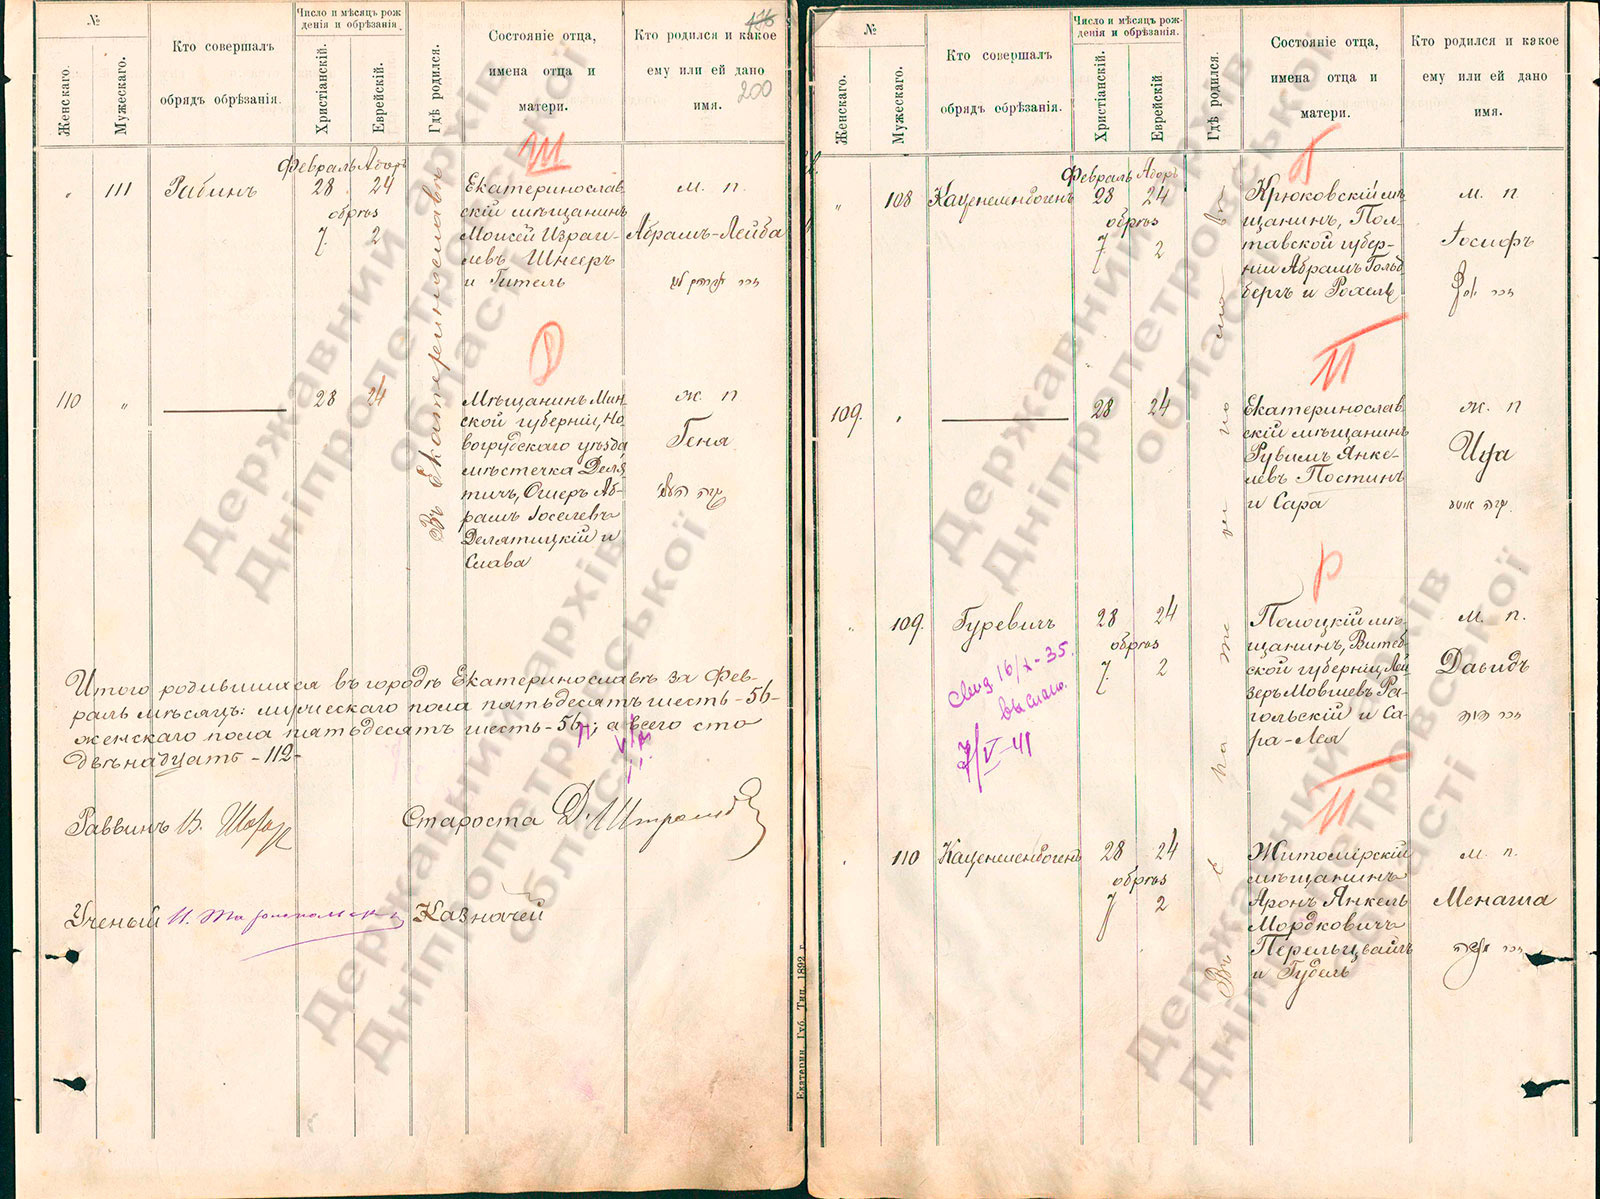 №
Женскаго.
Мужескаго.
Кто совершалъ
обрядъ обрѣзанія.
Число и мѣсяцъ рож-
денія и обрѣзанія.
Христіанскій.
Еврейскій.
Гдѣ родился.
Состояніе отца,
имена отца и
матери.
Кто родился и какое
ему или ей дано
имя.
200
Ш
Въ Екатеринославѣ
Февраль Адоръ
" 111 Рабинъ 28 24
обрѣз
7. 2
Екатеринослав
скій мѣщанинъ
Моисей Израи-
левъ Шнееръ
и Гитель
м. п.
Абрамъ-Лейба
זכר
Д
110 " 28 24
Мѣщанинъ Мин
ской губерніи, Но
вогрудскаго уѣзда
мѣстечка Деля
тичъ, Ошеръ Аб-
рамъ Іоселевъ
Делятицкій и
Слава
ж п
Геня
Итого родившихся въ городѣ Екатеринославѣ за Фев-
раль мѣсяцъ: мужескаго пола пятьдесятъ шесть -56-
женскаго пола пятьдесятъ шесть -56-; а всего сто
двѣнадцать -112-
Раввинъ В. Шахоръ
Староста Д.
Ученый
Казначей
Екатерин. Губ. Тип. 1892 г.
№
Женскаго.
Мужескаго.
Кто совершалъ
обрядъ обрѣзанія.
Число и мѣсяцъ рож-
денія и обрѣзанія.
Христіанскій.
Еврейскій
Гдѣ родился.
Состояніе отца,
имена отца и
матери.
Кто родился и какое
ему или ей дано
имя.
Февраль Адоръ
" 108 Каценеленбогенъ 28 24
обрѣз
7. 2
Крюковскій мѣ
щанинъ, Пол-
тавской губер-
ніи Абрамъ Гольд
бергъ и Рохель
м. п
Іосифъ
זכר יוסף
П
109. " 28 24
Екатеринослав
скій мѣщанинъ
Рувимъ Янке-
левъ Постинъ
и Сара
ж. п
Р
" 109. Гуревичъ 28 24
обрѣз
7. 2
Полоцкій мѣ-
щанинъ, Витеб
ской губерніи, Лей
зеръ Мовшевъ Ра-
гольскій и Са-
ра-Лея
м. п.
Давидъ
זכר דוד
16/X-35.
выслано.
7/V-41
П
110 Каценеленбогенъ 28 24
обрѣз
7 2
Житомірскій
мѣщанинъ
Аронъ Янкель
Мордковичъ
Перельцвайгъ
и Гудель
м. п.
Менаша
זכר מנשה
Державний архів
Дніпропетровської
області